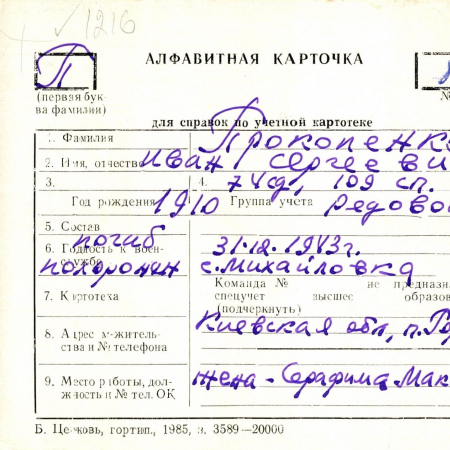 ✓1216
П
АЛФАВИТНАЯ КАРТОЧКА
(первая бук-
ва фамилии)
№
для справок по учетной картотеке
1. Фамилия Прокопенко
2. Имя, отчество Иван Сергееви
3. 4. 74 сд, 109 сп.
Год рождения 1910 Группа учета Рядово
5. Состав
погиб 31.12.1943г.
6. Годность к воен-
ской службе
похоронен с. Михайловка
7. Картотека
Команда № не предназн
спецучет высшее образов
(подчеркнуть)
8. Адрес жительс-
тва и № телефона
Киевская обл, п.
9. Место работы, дол-
жность и № тел. ОК
жена - Серафима Мак
Б. Церковь, гортип., 1985, з. 3589—20000